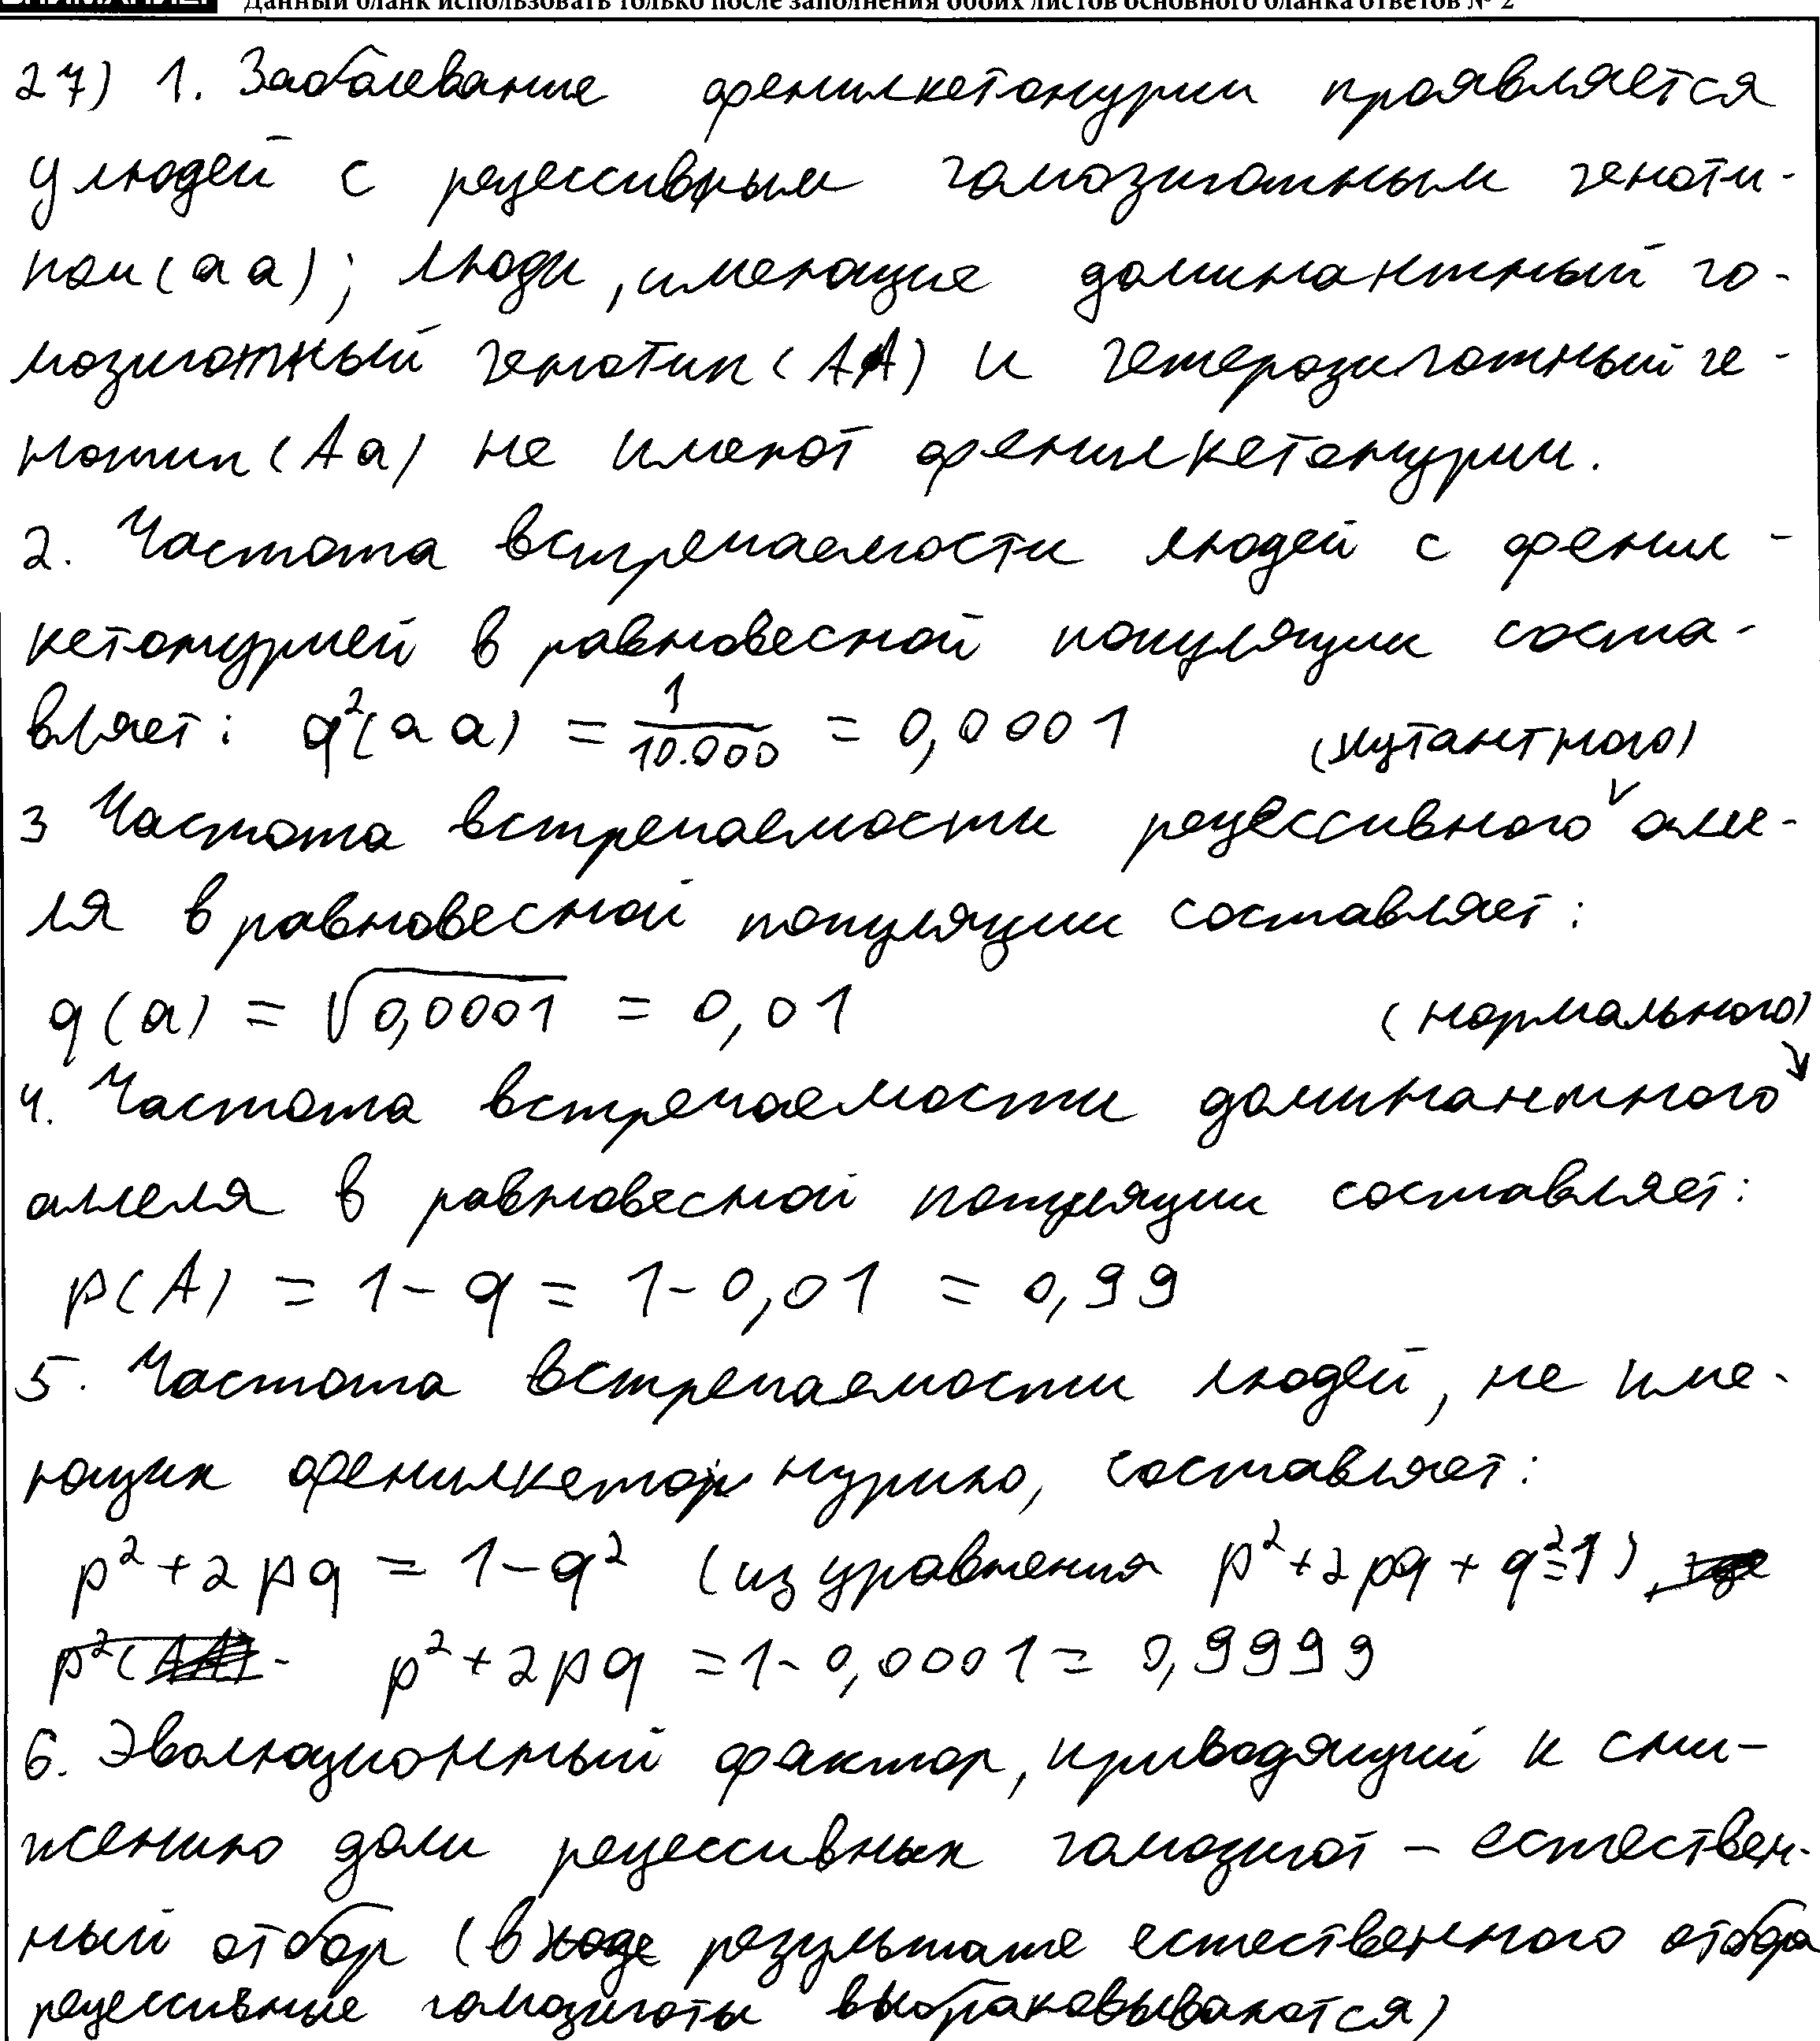 Данный бланк использовать только после заполнения обоих листов основного бланка ответов № 2
27) 1. Заболевание фенилкетонурии проявляется
у людей с рецессивным гомозиготным геноти-
пом (аа); люди, имеющие доминантный го-
мозиготный генотип (АА) и гетерозиготный ге-
нотип (Аа) не имеют фенилкетонурии.
2. Частота встречаемости людей с фенил-
кетонурией в равновесной популяции соста-
вляет: q²(аа) = 1/10.000 = 0,0001 (мутантного)
3 Частота встречаемости рецессивного алле-
ля в равновесной популяции составляет:
q(а) = √0,0001 = 0,01 (нормального)
4. Частота встречаемости доминантного
аллеля в равновесной популяции составляет:
p(А) = 1 - q = 1 - 0,01 = 0,99
5. Частота встречаемости людей, не име-
ющих фенилкетонурию, составляет:
p² + 2pq = 1 - q² (из уравнения p² + 2pq + q² = 1), где
p²(АА) - p² + 2pq = 1 - 0,0001 = 0,9999
6. Эволюционный фактор, приводящий к сни-
жению доли рецессивных гомозигот – естествен-
ный отбор (в ходе результате естественного отбора
рецессивные гомозиготы выбраковываются)